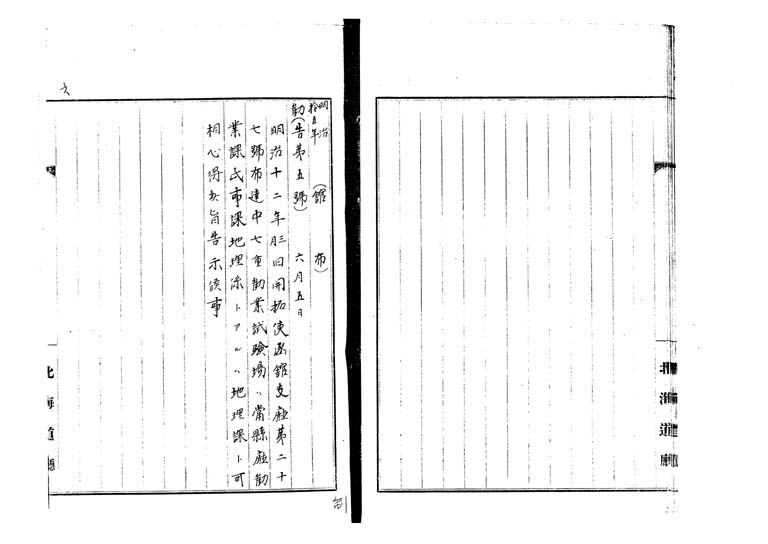 明治
拾五年 (館 布)
勧(告第五號) 六月五日
明治十二年三月旧開拓使函館支廰第二十
七號布達中七重勧業試驗場ハ當縣廰勧
業課民事課地理係トアルハ地理課ト可
相心得此旨告示候事
北海道廰
北海道廰